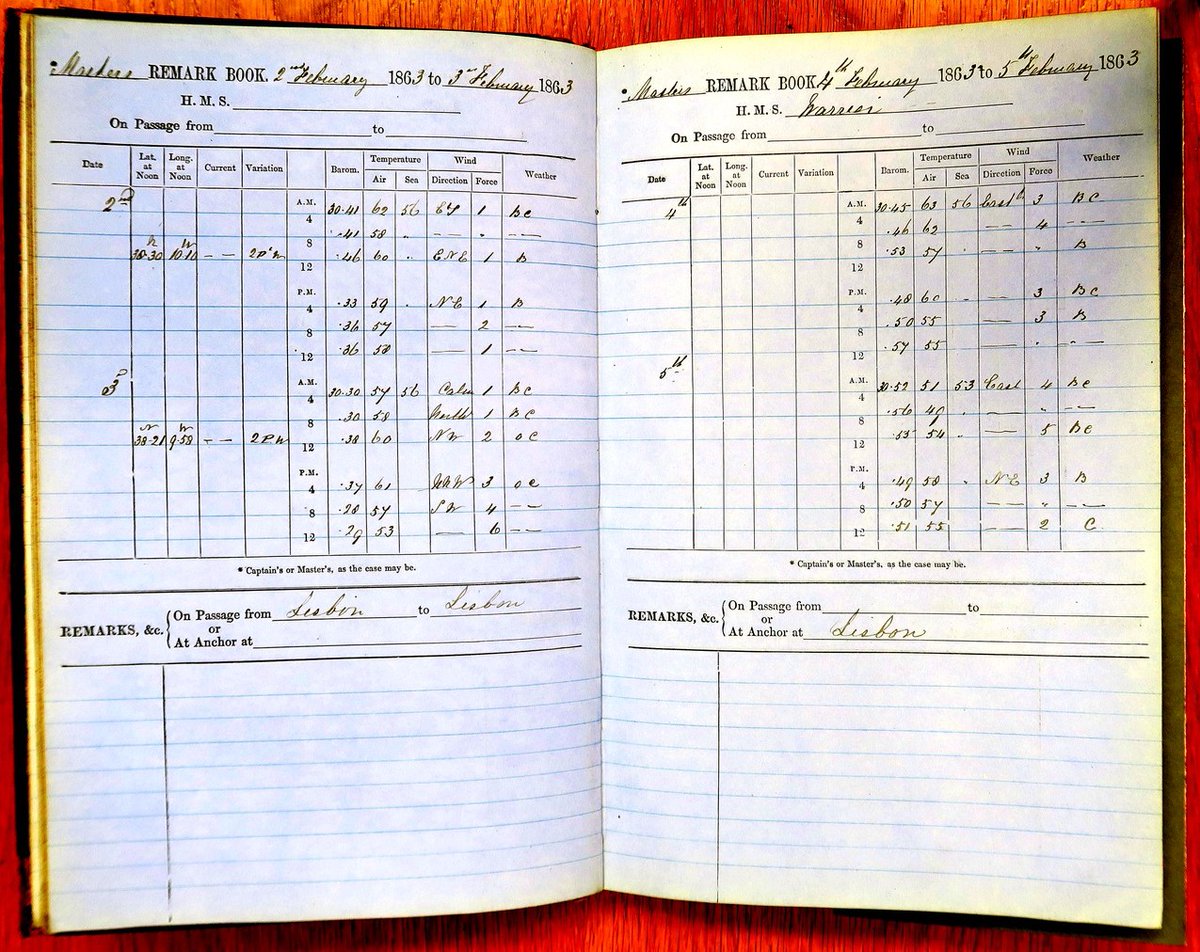 *Masters REMARK BOOK. 2nd February 1863 to 3rd February 1863
H. M. S.
On Passage from to
Date Lat. at Noon Long. at Noon Current Variation Barom. Temperature Wind Weather
Air Sea Direction Force
2nd A.M. 4 30·41 62 56 1 BC
8 ·41 58 " — " —
38·30 N 10·10 W — — 12 ·46 60 " ENE 1 B
P.M. 4 ·33 59 " NE 1 B
8 ·36 57 — 2 —
12 ·36 58 — 1 —
3d A.M. 4 30·30 57 56 Calm 1 BC
8 ·30 58 North 1 BC
38·21 N 9·58 W — — 12 ·38 60 NW 2 OC
P.M. 4 ·37 61 3 OC
8 ·28 57 SW 4 —
12 ·29 53 — 6 —
* Captain's or Master's, as the case may be.
REMARKS, &c. On Passage from Lisbon to Lisbon
or
At Anchor at
*Masters REMARK BOOK 4th February 1863 to 5th February 1863
H. M. S. Warrior
On Passage from to
Date Lat. at Noon Long. at Noon Current Variation Barom. Temperature Wind Weather
Air Sea Direction Force
4th A.M. 4 30·45 63 56 East 3 BC
8 ·46 62 — 4 —
12 ·53 57 " — " B
P.M. 4 ·48 60 — 3 BC
8 ·50 55 — 3 B
12 ·57 55 — " —
5th A.M. 4 30·52 51 53 East 4 BC
8 ·56 49 " — " —
12 ·55 54 " — 5 BC
P.M. 4 ·49 58 " NE 3 B
8 ·50 57 — " —
12 ·51 55 — 2 C
* Captain's or Master's, as the case may be.
REMARKS, &c. On Passage from to
or
At Anchor at Lisbon